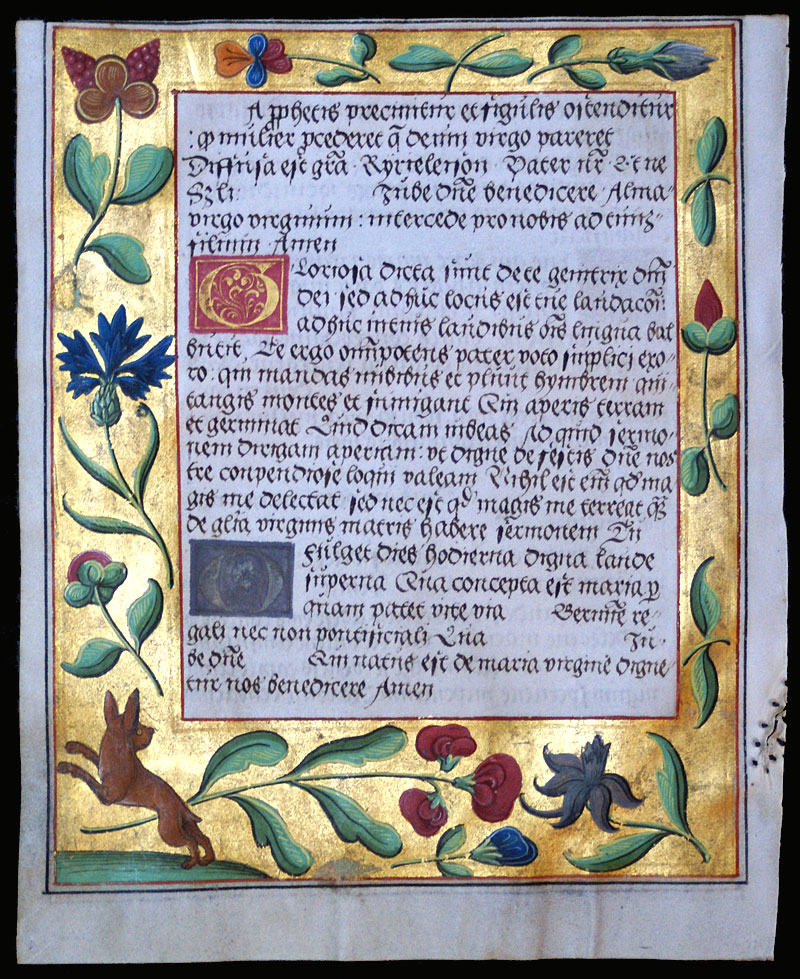 A p̄phetis precinitur et sigulis ostenditur
: ꝙ mulier ꝓcederet q̄ deum virgo pareret
Diffusa est grā · Kyrieleison · Pater nr̄ · Et ne
Jube dn̄e benedicere Alma
virgo virginum : intercede pro nobis ad tuuꝫ
filium Amen
Gloriosa dicta sunt de te genitrix dn̄i
dei sed adhuc locus est tue laudacōi:
adhuc in tuis laudibus oīs lingua bal
butit. Te ergo omīpotens pater voto simplici exo-
ro: qui mandas nubibus et pluūt hymbrem qui
tangis montes et fumigant Qui aperis terram
et germinat Quid dicam iubeas Ad quid sermo-
nem dirigam aperiam: vt digne de festis dn̄e nos
tre conpendiose loqui valeam Nihil est em̄ qd̓ ma
gis me delectat sed nec est qd̓ magis me terreat qꝫ
de glīa virginis matris habere sermonem Tu
Effulget dies hodierna digna laude
superna Qua concepta est maria ꝑ
quam patet vite via Germine re-
gali nec non pontificiali Qua Ju-
be dn̄e Qui natus est de maria virgine digne-
tur nos benedicere Amen